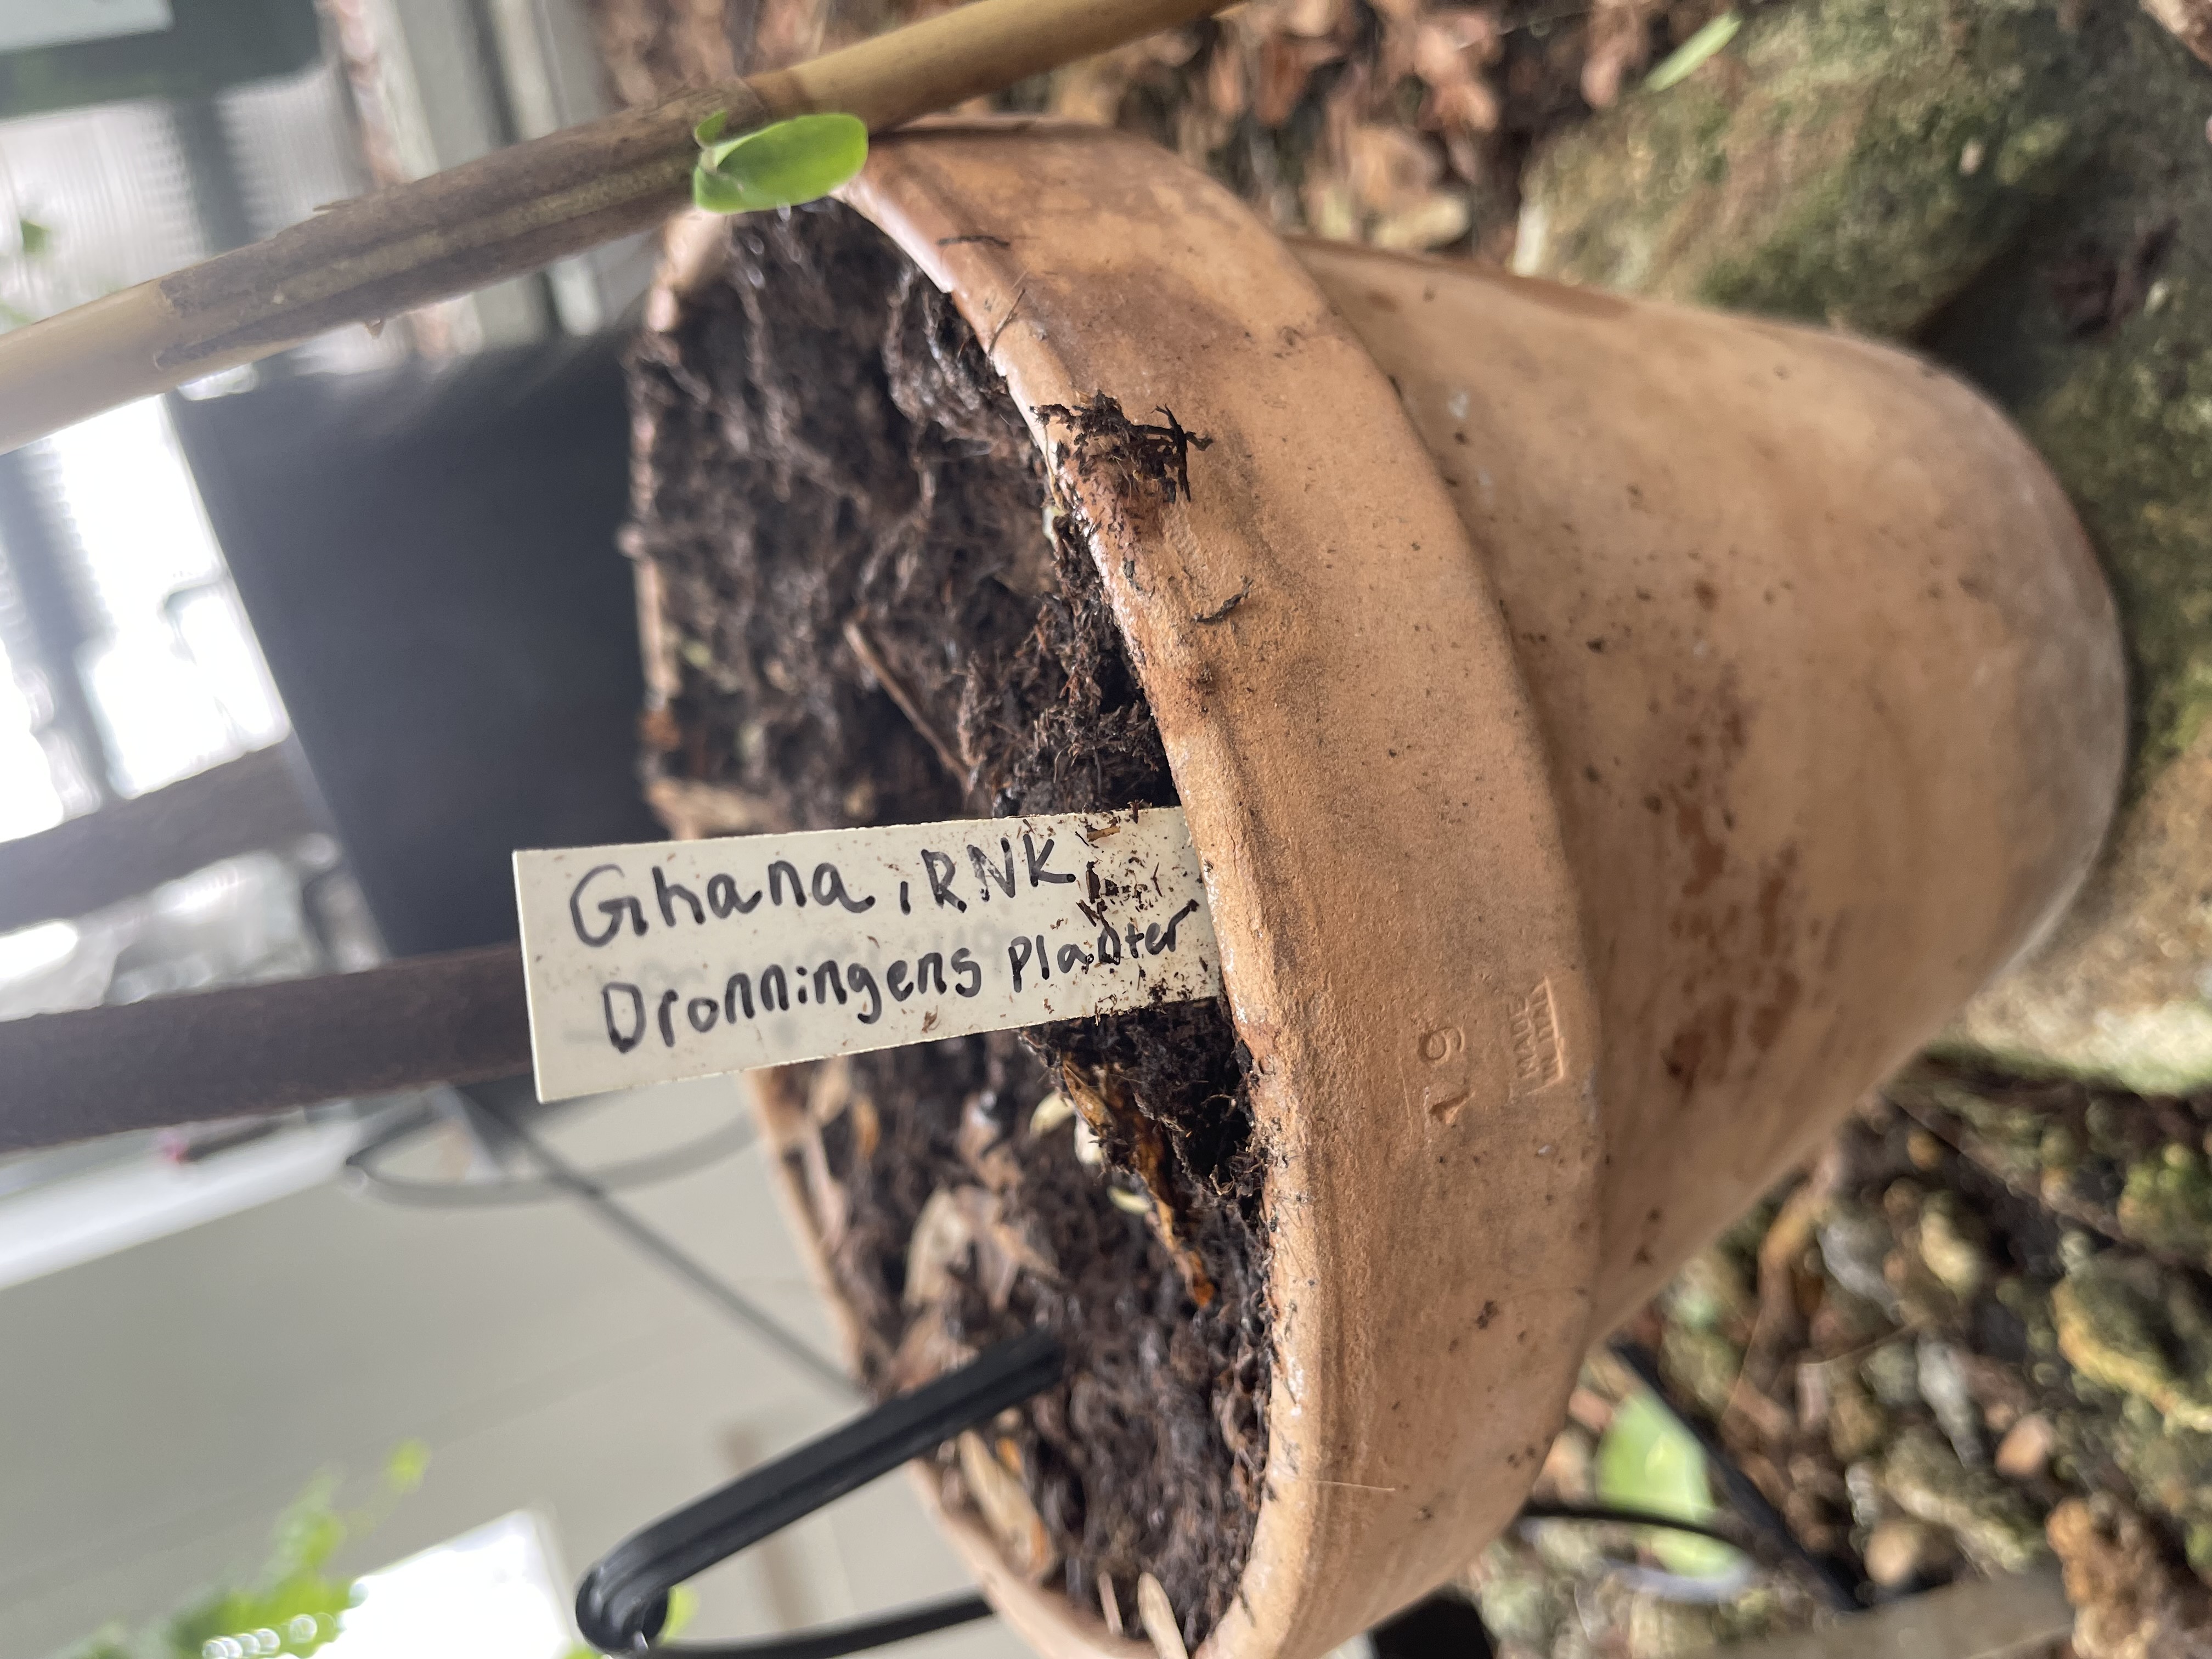 Ghana, RNK
Dronningens Pladter
19
MADE
IN ITALY